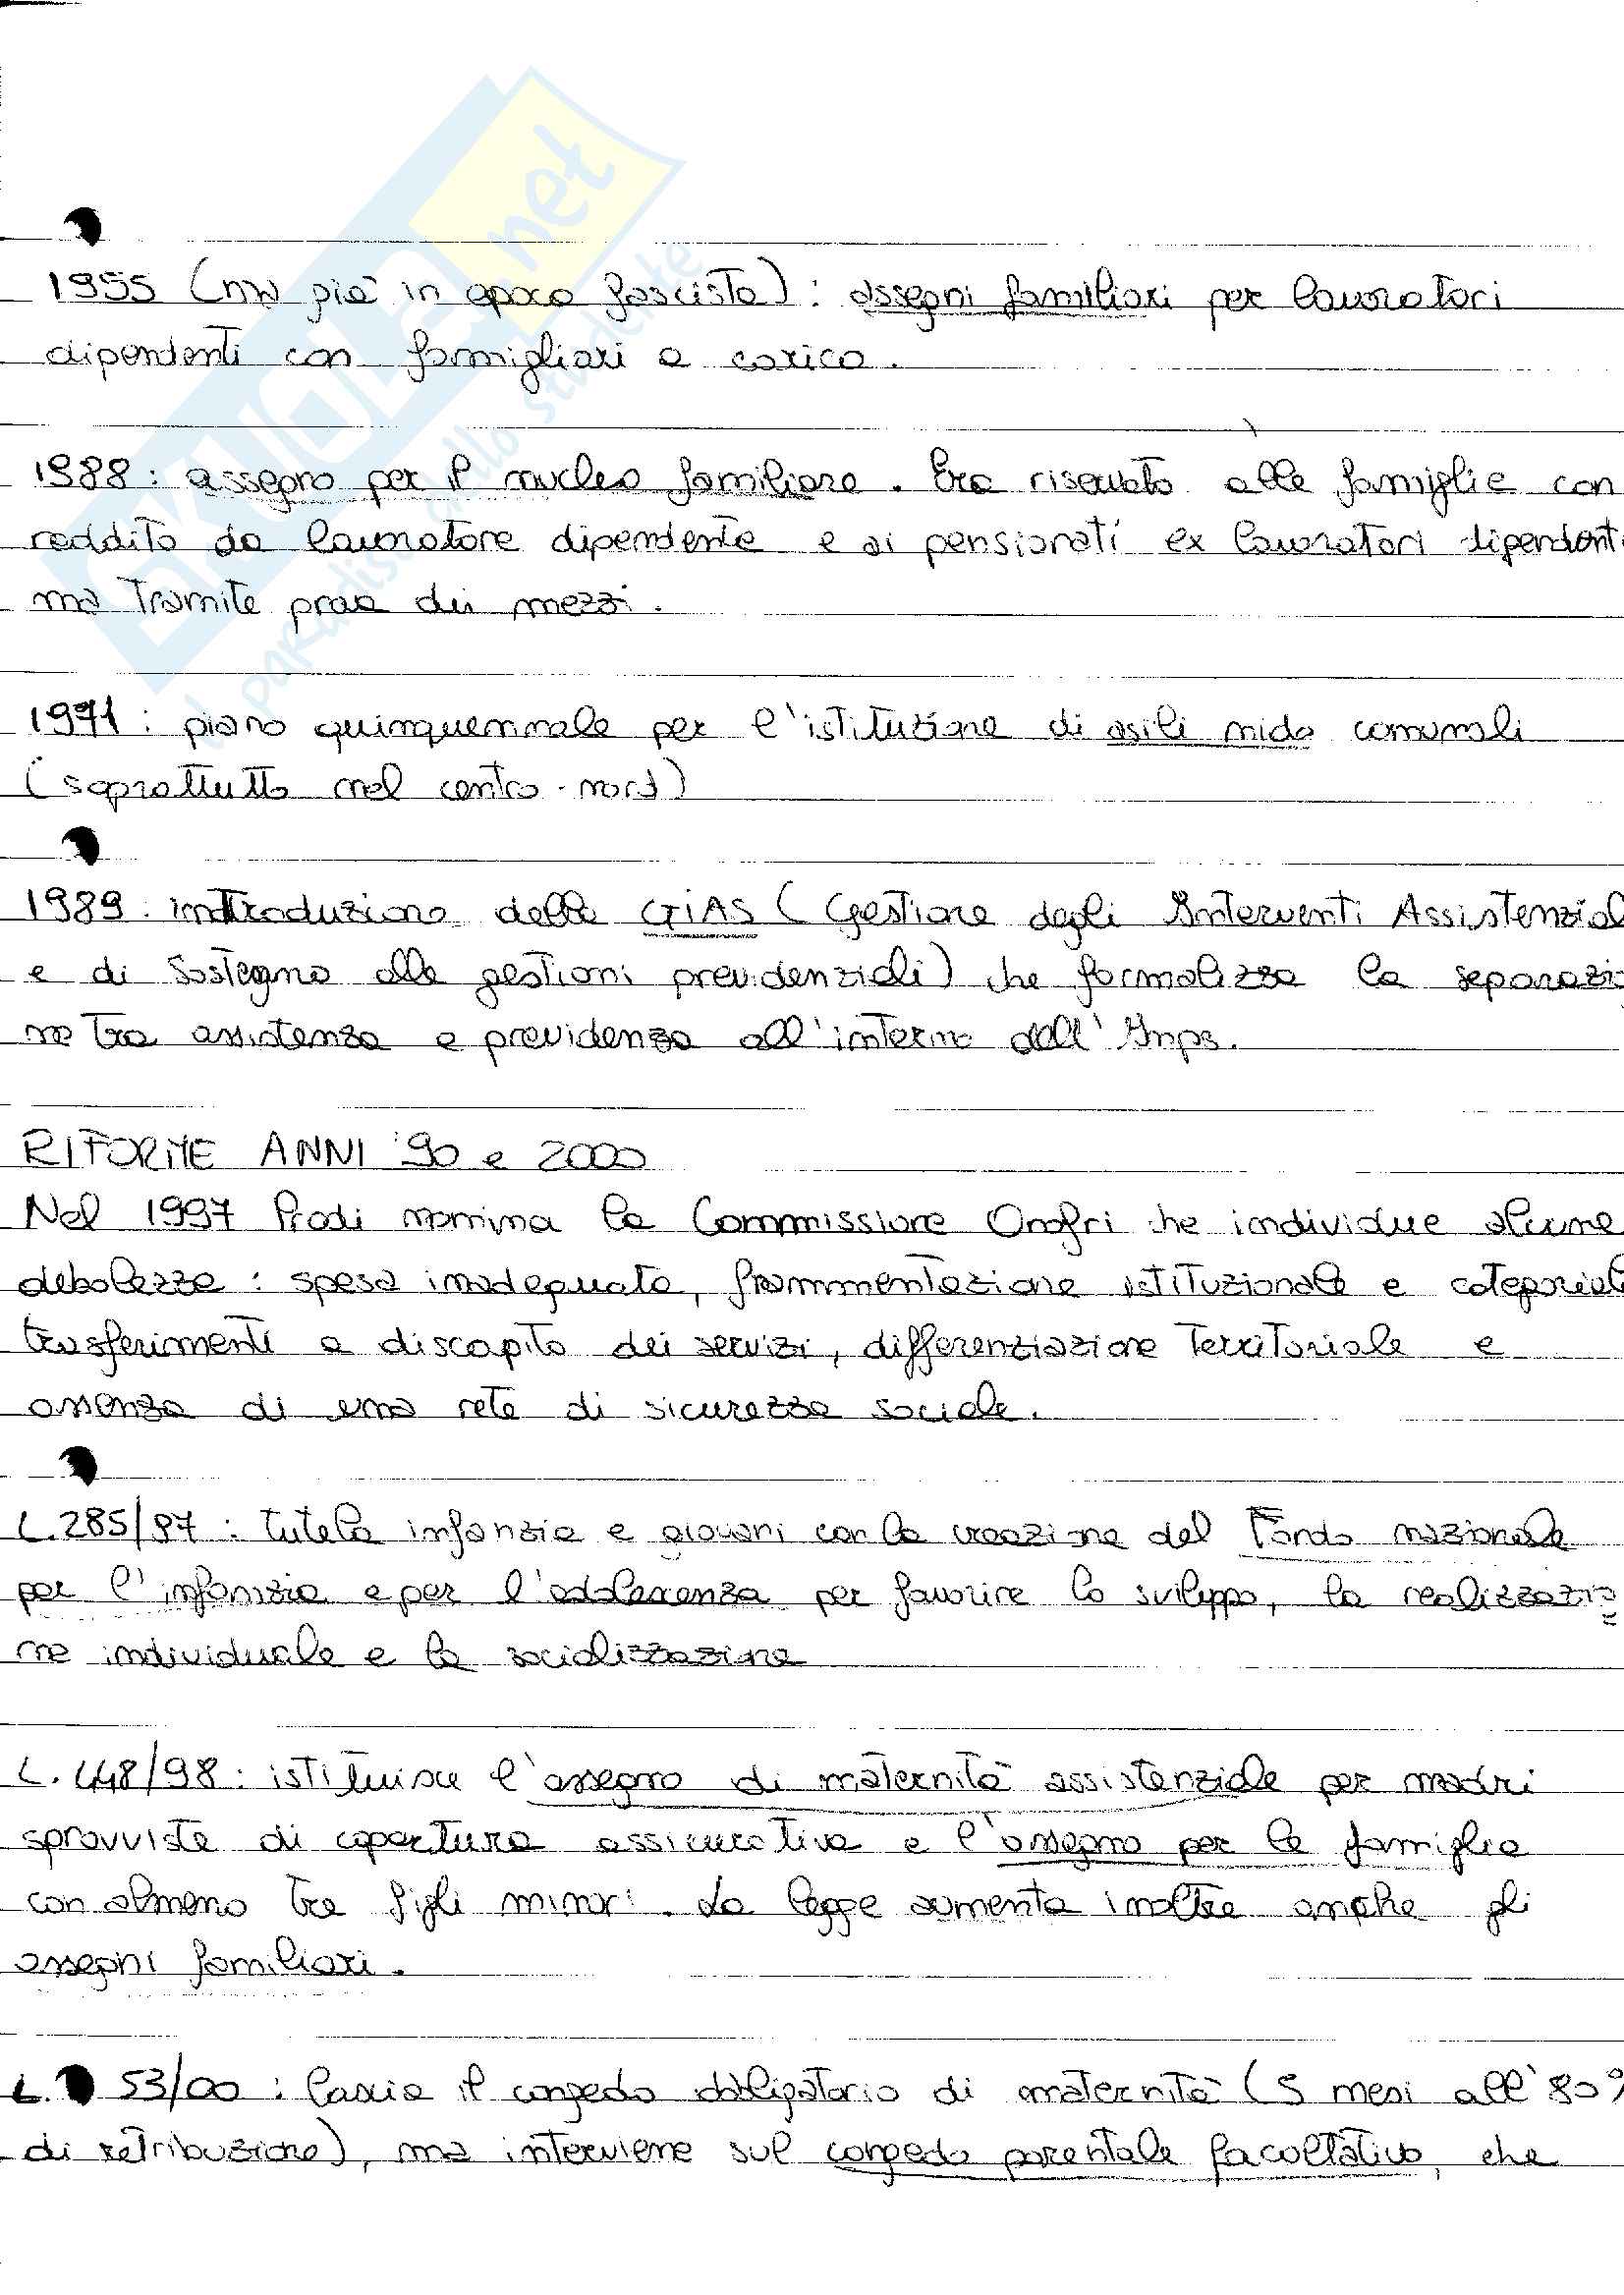 1955 (ma già in epoca fascista): assegni familiari per lavoratori
dipendenti con famigliari a carico.
1988: assegno per il nucleo familiare. Era riservato alle famiglie con
reddito da lavoratore dipendente e ai pensionati ex lavoratori dipendenti
ma tramite prova dei mezzi.
1971: piano quinquennale per l'istituzione di asili nido comunali
(soprattutto nel centro-nord)
1989: introduzione della GIAS (Gestione degli Interventi Assistenziali
e di Sostegno alle gestioni previdenziali) che formalizza la separazio
ne tra assistenza e previdenza all'interno dell'Inps.
RIFORME ANNI '90 e 2000
Nel 1997 Prodi nomina la Commissione Onofri che individua alcune
debolezze: spesa inadeguata, frammentazione istituzionale e categoriale
trasferimenti a discapito dei servizi, differenziazione territoriale e
assenza di una rete di sicurezza sociale.
L.285/97: tutela infanzia e giovani con la creazione del Fondo nazionale
per l'infanzia e per l'adolescenza per favorire lo sviluppo, la realizzazio
ne individuale e la socializzazione
L. 448/98: istituisce l'assegno di maternità assistenziale per madri
sprovviste di copertura assicurativa e l'assegno per la famiglia
con almeno tre figli minori. La legge aumenta inoltre anche gli
assegni familiari.
L. 53/00: lascia il congedo obbligatorio di maternità (5 mesi all'80%
di retribuzione), ma interviene sul congedo parentale facoltativo, che
SKUOLA.net
il paradiso dello studente